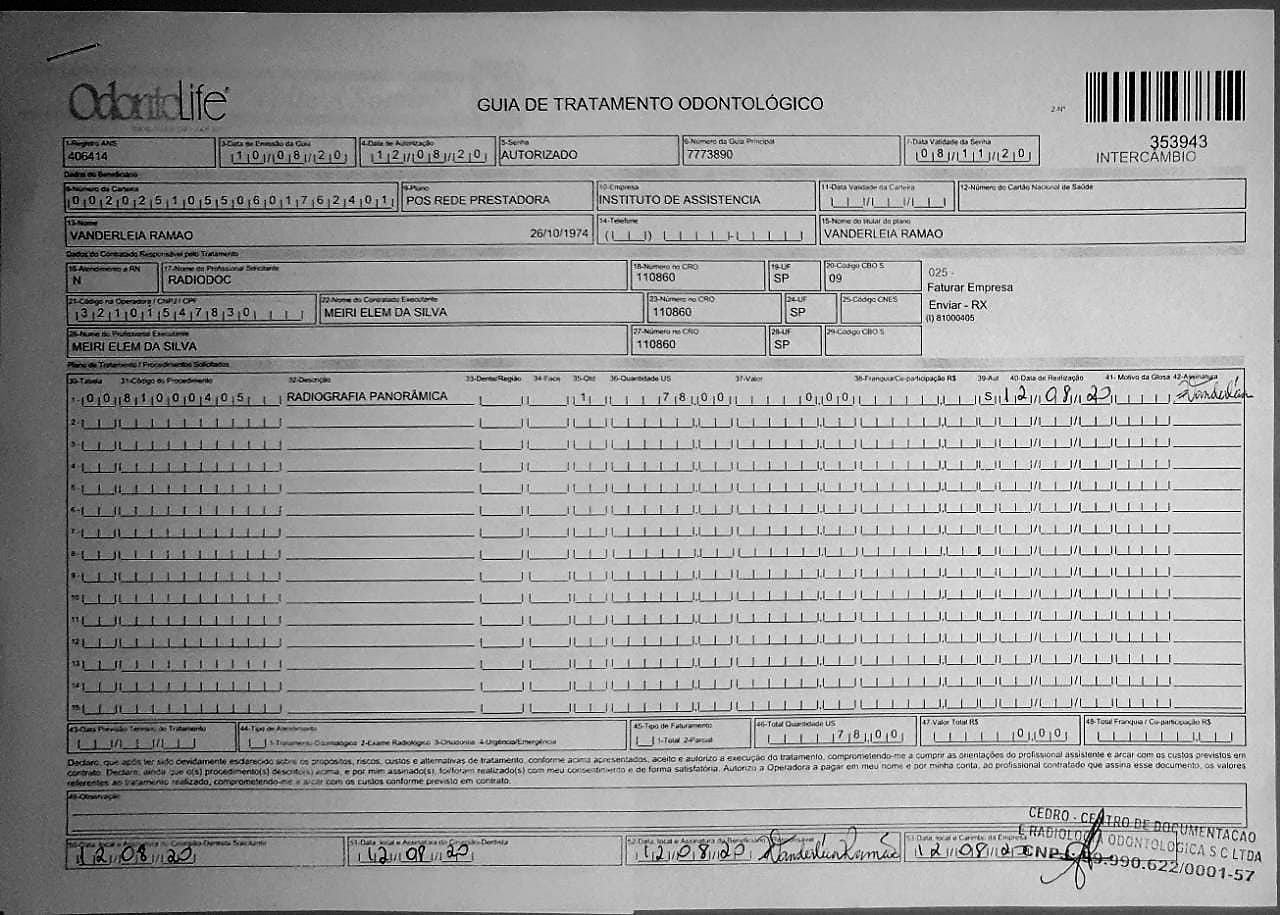 OdontoLife
GUIA DE TRATAMENTO ODONTOLÓGICO
2-Nº
353943
INTERCÂMBIO
1-Registro ANS
406414
3-Data de Emissão da Guia
10/08/20
4-Data de Autorização
12/08/20
5-Senha
AUTORIZADO
6-Número da Guia Principal
7773890
7-Data Validade da Senha
08/11/20
Dados do Beneficiário
8-Número da Carteira
00202510550601762401
9-Plano
POS REDE PRESTADORA
10-Empresa
INSTITUTO DE ASSISTENCIA
11-Data Validade da Carteira
12-Número do Cartão Nacional de Saúde
13-Nome
VANDERLEIA RAMAO 26/10/1974
14-Telefone
15-Nome do titular do plano
VANDERLEIA RAMAO
Dados do Contratado Responsável pelo Tratamento
16-Atendimento a RN
N
17-Nome do Profissional Solicitante
RADIODOC
18-Número no CRO
110860
19-UF
SP
20-Código CBO S
09
025 -
Faturar Empresa
Enviar - RX
(I) 81000405
21-Código na Operadora / CNPJ / CPF
32101547830
22-Nome do Contratado Executante
MEIRI ELEM DA SILVA
23-Número no CRO
110860
24-UF
SP
25-Código CNES
26-Nome do Profissional Executante
MEIRI ELEM DA SILVA
27-Número no CRO
110860
28-UF
SP
29-Código CBO S
Plano de Tratamento / Procedimentos Solicitados
30-Tabela 31-Código do Procedimento 32-Descrição 33-Dente/Região 34-Face 35-Qtd 36-Quantidade US 37-Valor 38-Franquia/Co-participação R$ 39-Aut 40-Data de Realização 41- Motivo da Glosa 42-Assinatura
1- 00 81000405 RADIOGRAFIA PANORÂMICA 1 78,00 0,00 S 12/08/20 Vanderléia
2-
3-
4-
5-
6-
7-
8-
9-
10
11
12
13
14
15
43-Data Previsão Término do Tratamento
44-Tipo de Atendimento
1-Tratamento Odontológico 2-Exame Radiológico 3-Ortodontia 4-Urgência/Emergência
45-Tipo de Faturamento
1-Total 2-Parcial
46-Total Quantidade US
78,00
47-Valor Total R$
0,00
48-Total Franquia / Co-participação R$
Declaro, que após ter sido devidamente esclarecido sobre os propósitos, riscos, custos e alternativas de tratamento, conforme acima apresentados, aceito e autorizo a execução do tratamento, comprometendo-me a cumprir as orientações do profissional assistente e arcar com os custos previstos em
contrato. Declaro, ainda que o(s) procedimento(s) descrito(s) acima, e por mim assinado(s), foi/foram realizado(s) com meu consentimento e de forma satisfatória. Autorizo a Operadora a pagar em meu nome e por minha conta, ao profissional contratado que assina esse documento, os valores
referentes ao tratamento realizado, comprometendo-me a arcar com os custos conforme previsto em contrato.
49-Observação
50-Data, local e Assinatura do Cirurgião-Dentista Solicitante
12/08/20
51-Data, local e Assinatura do Cirurgião-Dentista
12/08/20
52-Data, local e Assinatura do Beneficiário
12/08/20 Vanderleia Ramão
53-Data, local e Carimbo da Empresa
12/08/20
CEDRO - CENTRO DE DOCUMENTACAO
E RADIOLOGIA ODONTOLOGICA S C LTDA